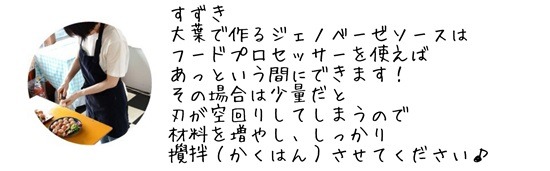 すずき
大葉で作るジェノベーゼソースは
フードプロセッサーを使えば
あっという間にできます！
その場合は少量だと
刃が空回りしてしまうので
材料を増やし、しっかり
攪拌（かくはん）させてください♪